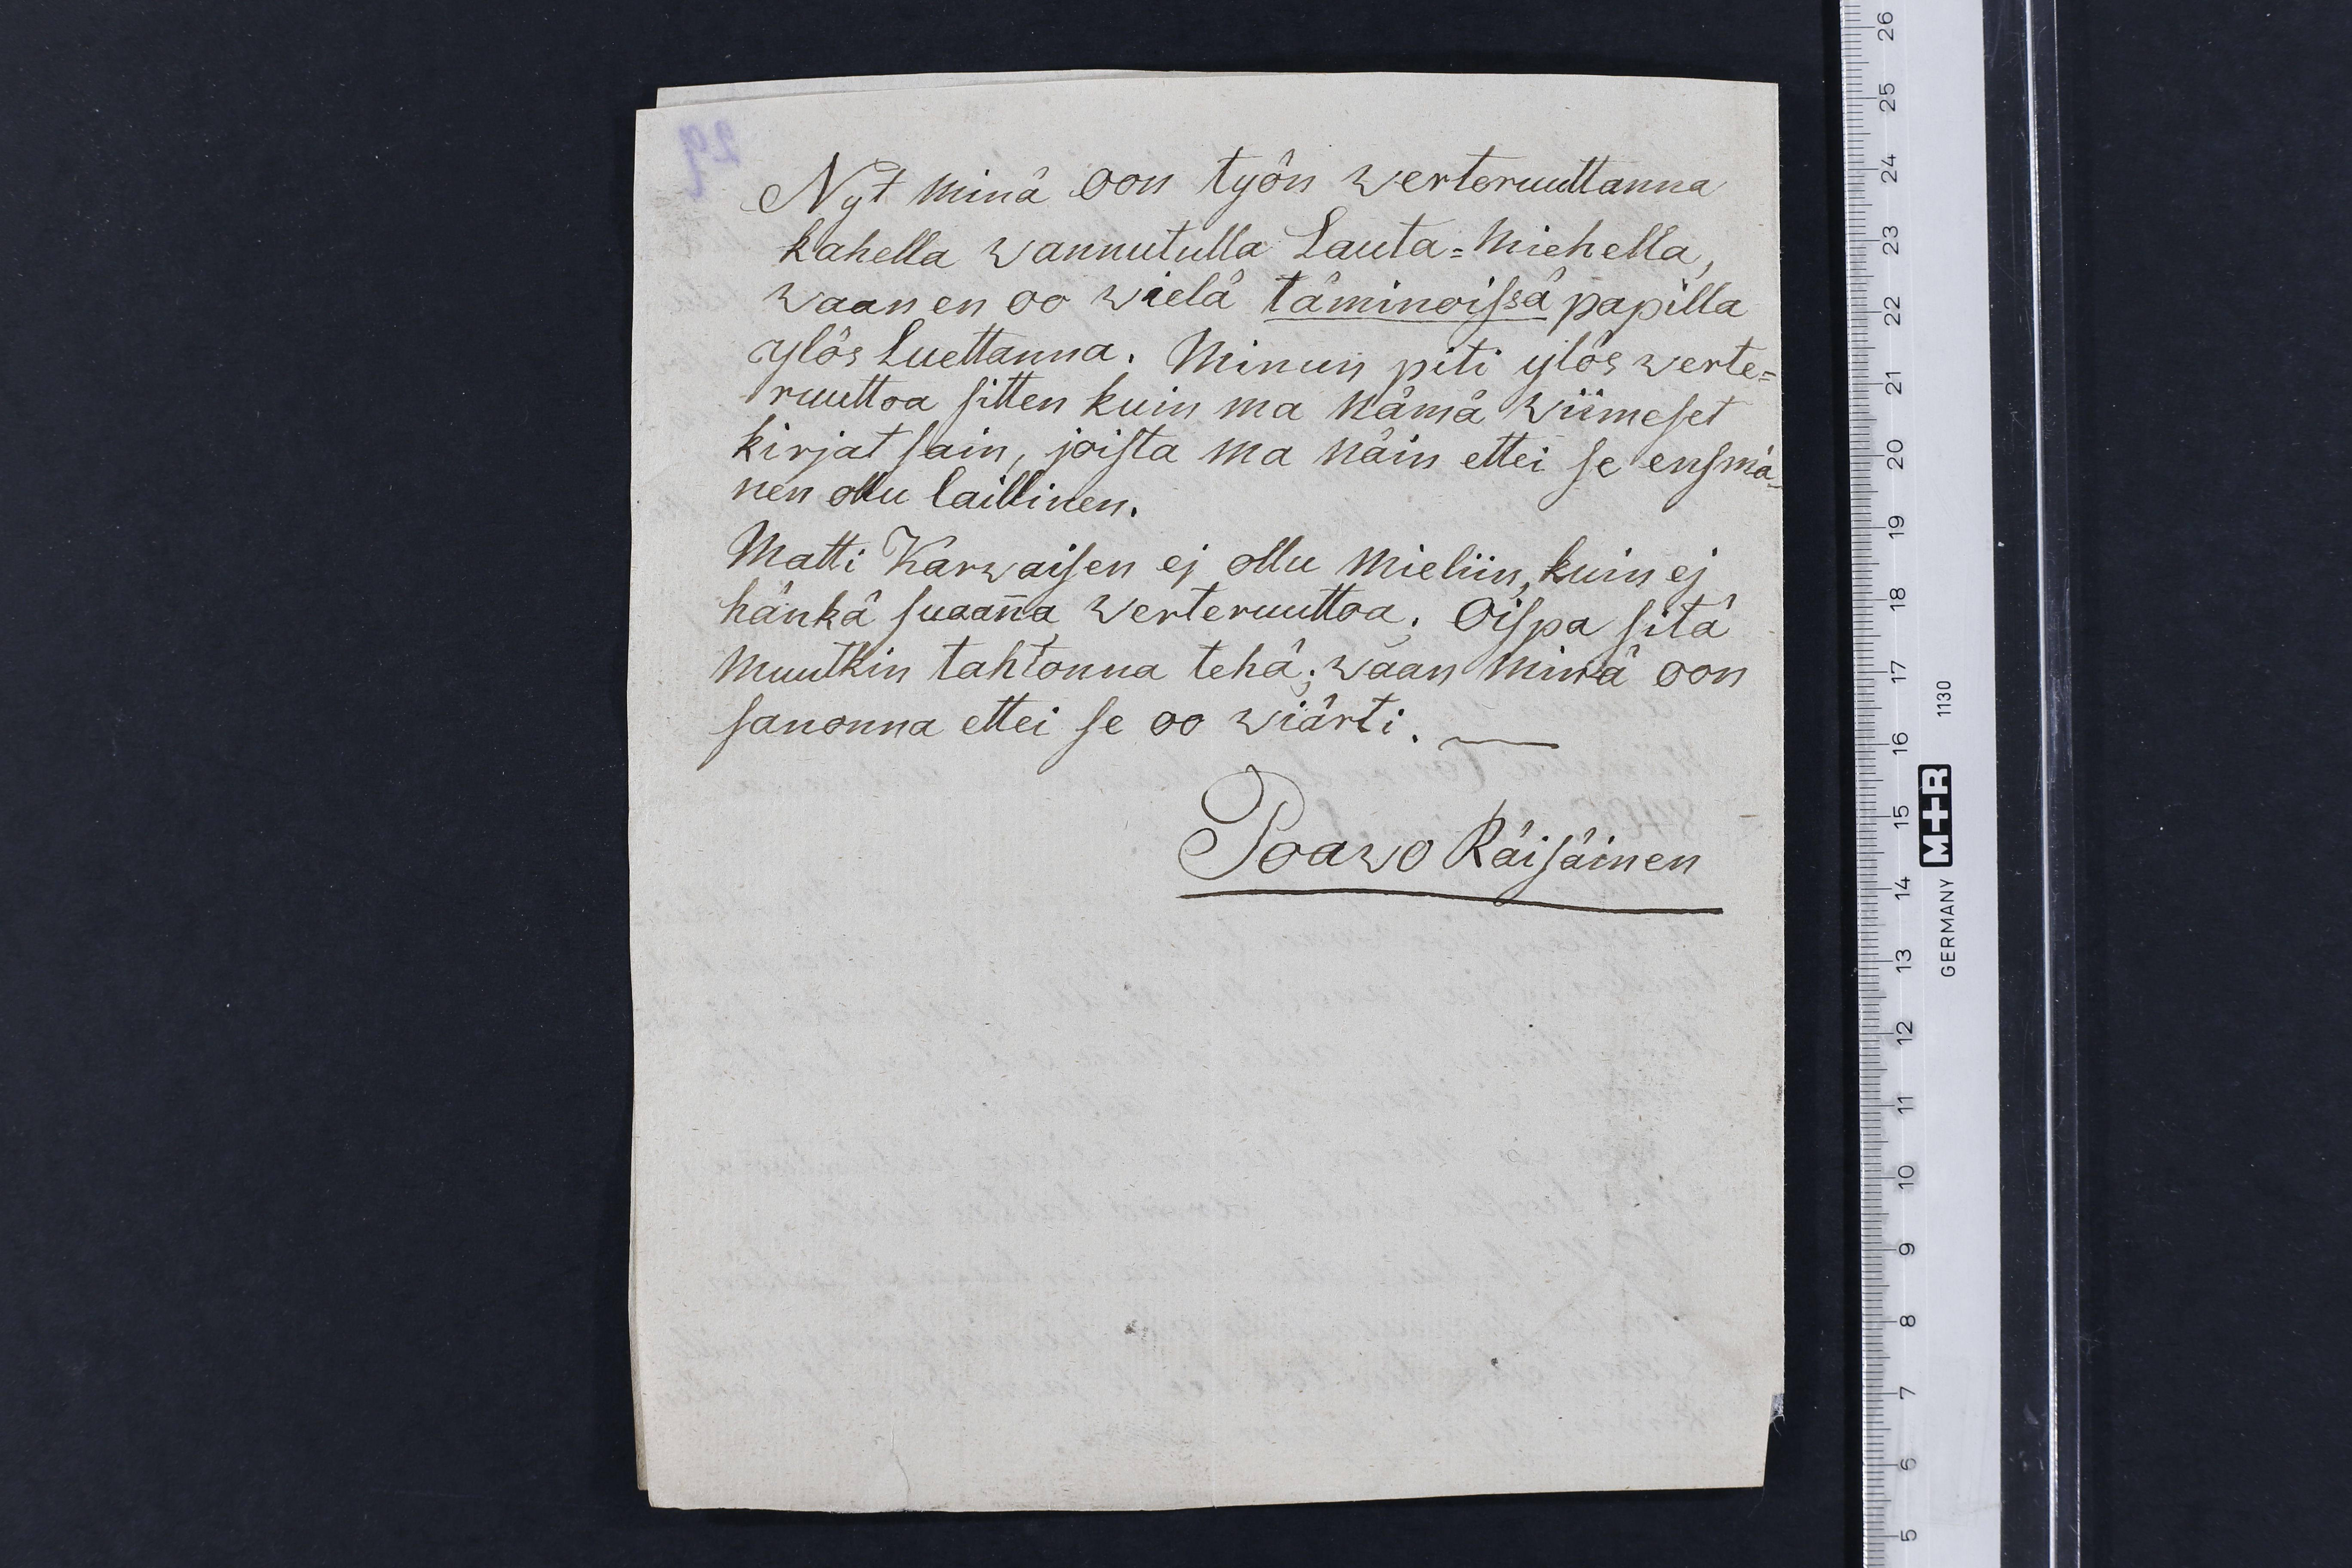 Nyt minä oon työn werteruuttanna
kahella wannutulla Lauta=Miehella,
waan en oo wielä täminoissä papilla
ylös Luettanna. Minun piti ylös werte=
ruuttoa sitten kuin ma nämä wiimeset
kirjat sain, joista ma näin ettei se ensmä-
nen ollu laillinen.
Matti Karwaisen ej ollu Mieliin, kuin ej
hänkä suaan̄a werteruuttoa. Oispa sitä
muutkin tahtonna tehä; waan minä oon
sanonna ettei se oo wiärti. —
Poawo Räisäinen
29
26
25
24
23
22
21
20
19
18
17
16
15
14
13
12
11
10
9
8
7
6
5
GERMANY M+R 1130